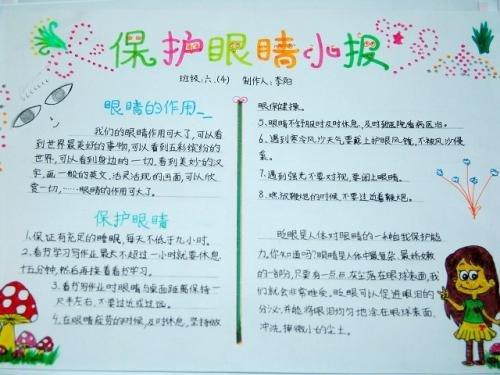 保护眼睛小报
班级:六.(4) 制作人:李阳
眼睛的作用
我们的眼睛作用可大了,可以看
到世界最美好的事物,可以看到五彩缤纷的
世界,可以看到身边的一切,看到美妙的汉
字,画一般的英文,活灵活现的画面,可以欣
赏一切,……眼睛的作用可大了。
保护眼睛
1.保证有充足的睡眠,每天不低于九小时。
2.看书学习写作业最大不超过一小时就要休息
十五分钟,然后再接着看书学习。
3.看书写作业时眼睛与桌面距离保持一
尺左右,不要过近或过远。
4.在眼睛疲劳的时候,及时休息,坚持做
眼保健操。
5.眼睛不舒服时及时休息,及时到医院看病医治。
6.遇到寒冷风沙天气要戴上护眼风镜,不被风沙侵
袭。
7.遇到强光不要对视,要闭上眼睛。
8.燃放鞭炮的时候,不要过近看鞭炮。
眨眼是人体对眼睛的一种自我保护能
力,你知道吗?眼睛是人体中最复杂、最娇嫩
的一部分,只要有一点点灰尘落在眼球表面,我
们就会非常难受。眨眼可以促进眼泪的
分泌,并能将眼泪均匀地涂在眼球表面,
冲洗掉微小的尘土。